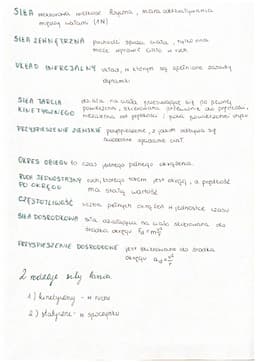 SIŁA wektorowa wielkość fizyczna, miara oddziaływania
między ciałami (1N)
SIŁA ZEWNĘTRZNA pochodzi spoza ciała, tylko ona
może wprawić ciało w ruch
UKŁAD INERCJALNY układ, w którym są spełnione zasady
dynamiki
SIŁA TARCIA działa na ciała poruszające się po pewnej
KINETYCZNEGO powierzchni, skierowana przeciwnie do prędkości,
niezależna od prędkości i pola powierzchni
PRZYSPIESZENIE ZIEMSKIE przyspieszenie, z jakim odbywa się
swobodne spadanie ciał
OKRES OBIEGU to czas jednego pełnego okrążenia
RUCH JEDNOSTAJNY ruch, którego torem jest okrąg, a prędkość
PO OKRĘGU ma stałą wartość
CZĘSTOTLIWOŚĆ liczba pełnych okrążeń w jednostce czasu
SIŁA DOŚRODKOWA siła działająca na ciało skierowana do
środka okręgu Fd=m v²/r
PRZYSPIESZENIE DOŚRODKOWE jest skierowane do środka
okręgu ad=v²/r
2 rodzaje siły tarcia
1) kinetyczny - w ruchu
2) statyczne - w spoczynku